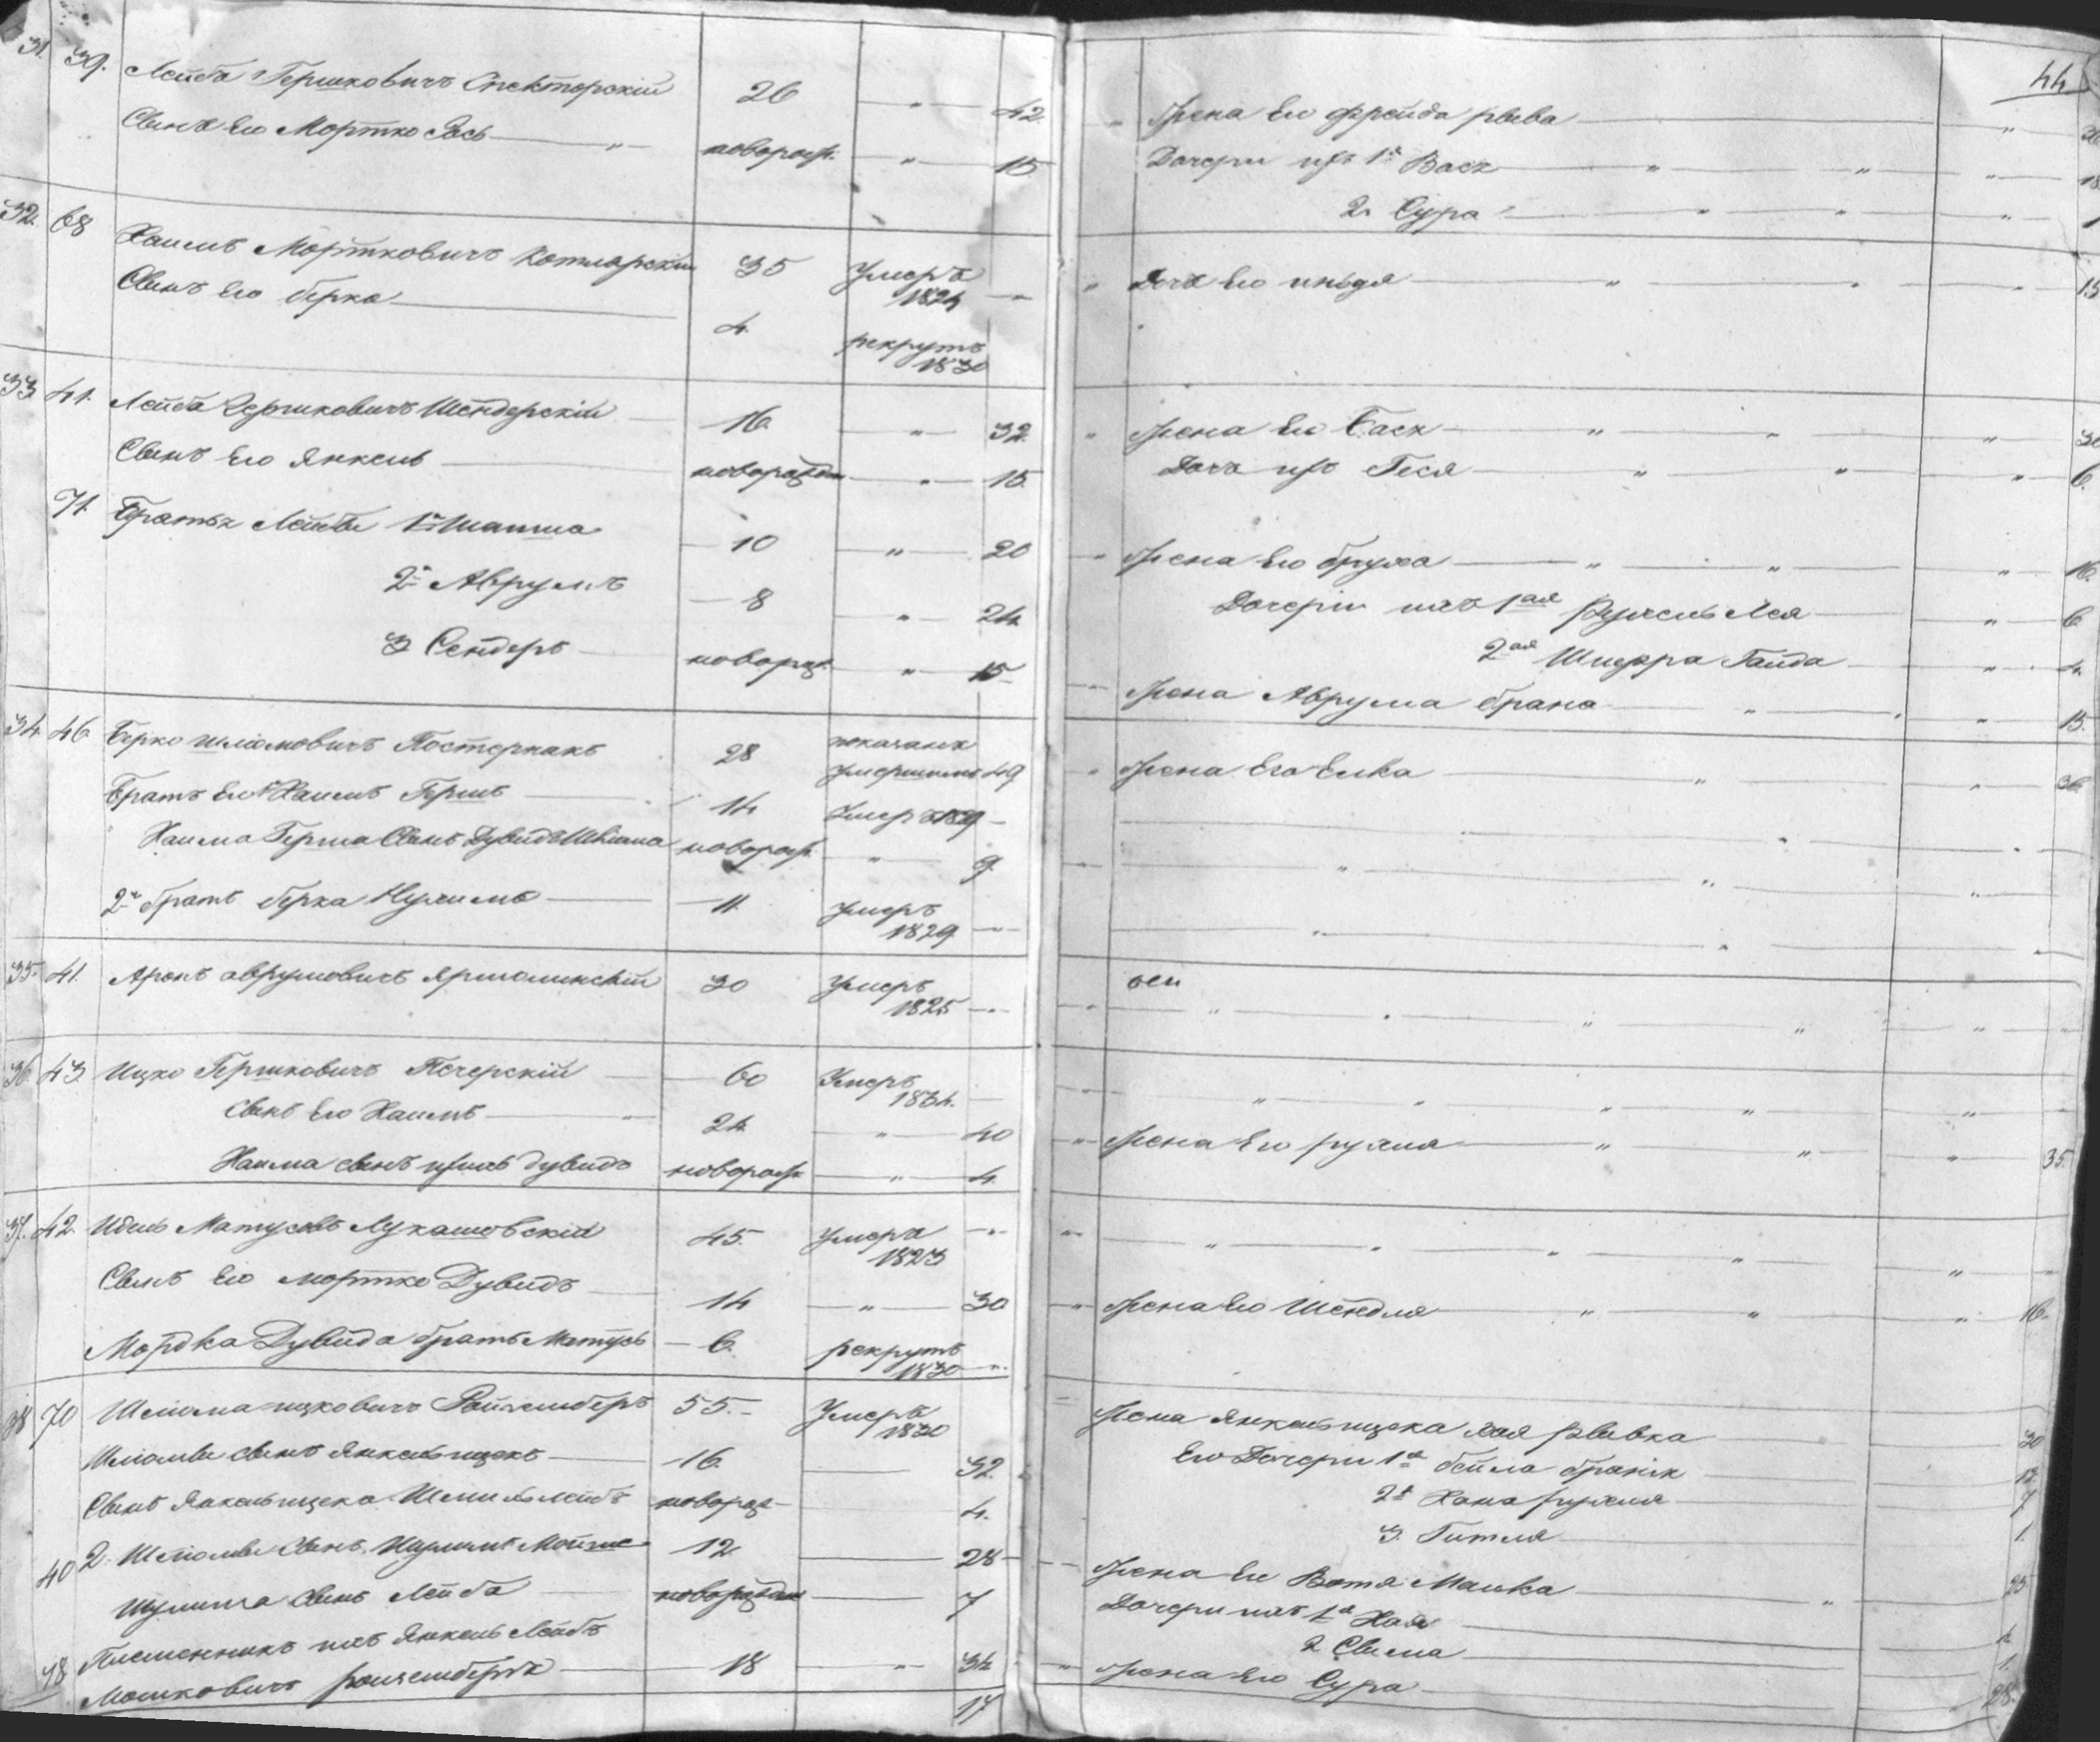 44
31. 39. Лейба Гершковичъ Спекторскій 26 " 42.
Сынъ Его Мортко Іось " новорож. " 15
32. 68 Хаимъ Мортковичъ Котлярскій 35 Умеръ 1824 "
Сынъ Его Берко 4. рекрутъ 1830
33 41. Лейба Гершковичъ Шендерскій 16. " 32.
Сынъ Его Янкель новорожден " 15.
71. Братья Лейбы 1й Шапша 10 " 20
2й Аврумъ 8 " 24
3 Сендеръ новорож. " 15
34. 46 Берко Шліомовичъ Постернакъ 28 показанъ умершимъ 49
Братъ Его Хаимъ Гершъ 14 Умеръ 1829
Хаима Герша Сынъ Дувидъ новорож. " 9.
2й братъ Берка Нухимъ 11. умеръ 1829 "
35. 41. Аронъ Аврумовичъ Ярмолинскій 30 Умеръ 1825 "
36. 43. Ицко Гершковичъ Печерскій 60 Умеръ 1834.
сынъ Его Хаимъ " 24 " 40
Хаима сынъ Дувидъ новорож " 4.
37. 42. Идель Матусовъ Лукашовскій 45. умеръ 1823 "
Сынъ Его Мортко Дувидъ 14 " 30
Мордка Дувида братъ Матусь 6. рекрутъ 1830 "
38 70 Шліома Ицковичъ Ройземберъ 55. Умеръ 1830
Шліомы сынъ Янкель Ицекъ 16. 32.
Сынъ Янкель Ицека Шмиль Лейбъ новорож 4.
40 2. Шліомы Сынъ 12 28
Сынъ Лейба новорожден 7
78 Племенникъ ихъ Янкель Лейбъ
Мошковичъ Ройземберъ 18 " 34
17
" Жена Его Фрейда Рыва "
Дочери ихъ 1я Бася " " " 18
2я Сура " " "
" Дочь Его " " " 15
" Жена Его Бася " " "
Дочь ихъ Геся " " " 6.
" Жена Его Бруха " " " 16.
Дочери ихъ 1ая Рухель Лея " 6
2ая Шифра Гайда " 4.
Жена Аврума Брана " " 15.
" Жена Его Елка " " 36.
" Жена Его Рухля " " " 35.
" Жена Его Шендля " " " 16.
Жена Янкель Ицека Хая Рывка 30
Его Дочери 1я Бейла 12.
2я Хана Рухля 7
3. Гитля 1.
Жена Его Малка " 25
Дочери ихъ 1я Хая
2 Сыма 1.
" Жена Его Сура 28.